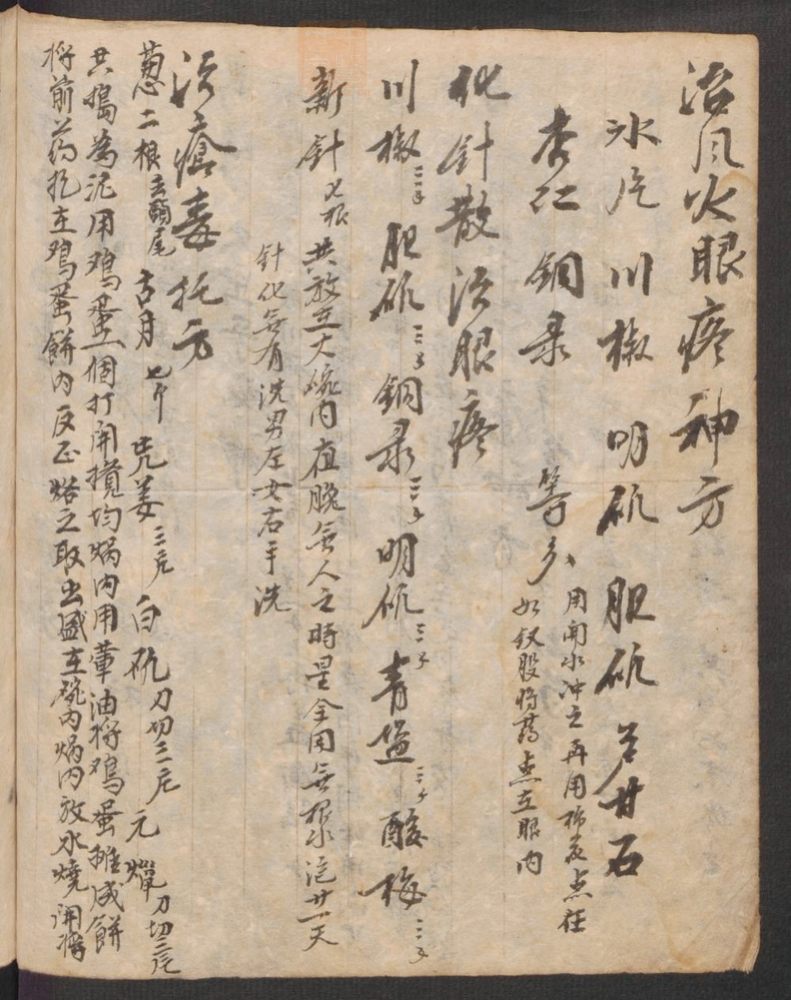 治风火眼疼神方
冰片 川椒 明矾 胆矾 芦甘石
杏仁 铜彔 等分 用開水冲之再用棉花点在
如釵股將药点在眼内
化針散治眼疼
川椒三分 胆矾三分 铜彔三分 明矾三分 青盐三分 酸梅三个
新針七根 共放在大碗内夜晚無人之時星全用無根水泡廿一天
針化無有洗男左女右手洗
治瘡毒托方
葱二根去頭尾 古月七个 光姜三片 白矾 刀切三片 元 刀切三片
共搗為泥用鸡蛋一個打開攪均焬内用葷油将鸡蛋摊成餅
将前药包在鸡蛋餅内反正烙之取出盛在碗内焬内放水燒開将